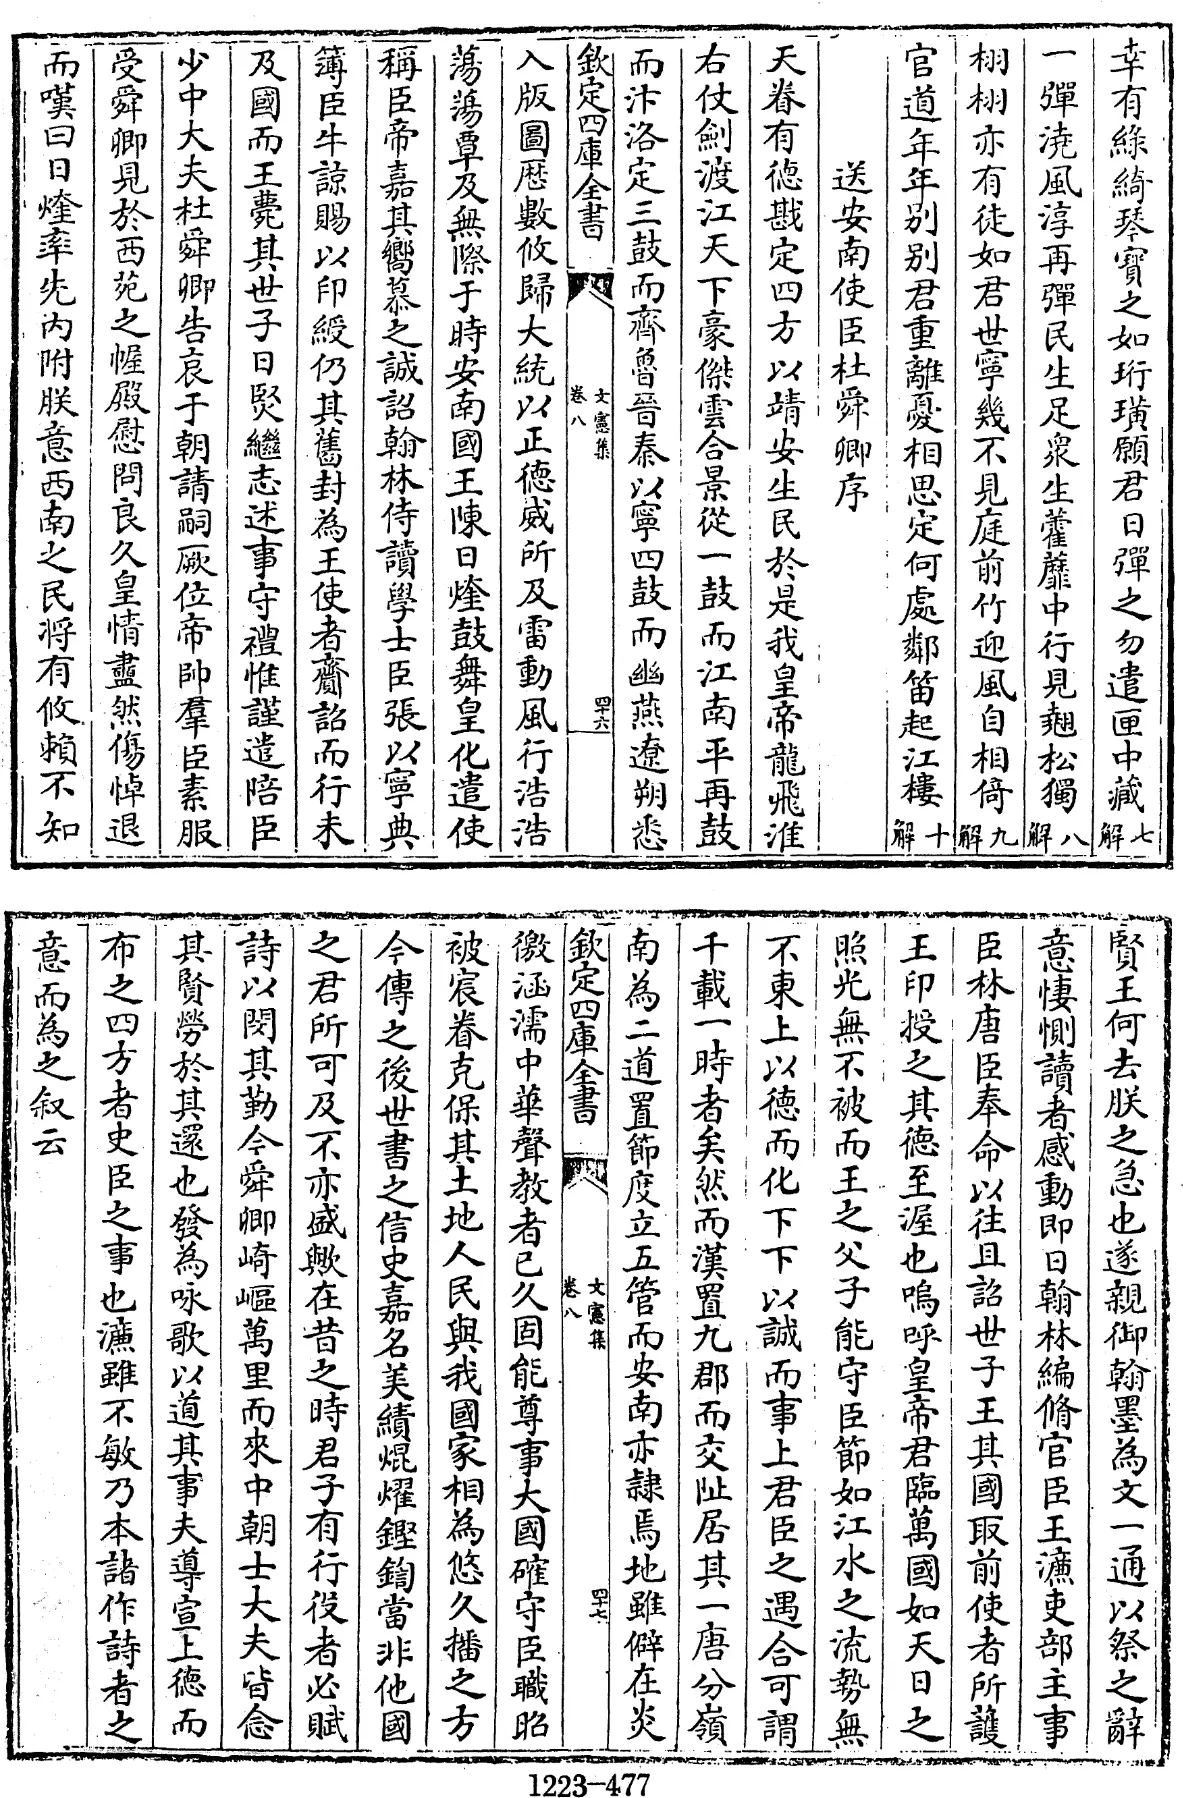 幸有綠綺琴寳之如珩璜願君日彈之勿遣匣中藏七解
一彈澆風淳再彈民生足衆生藿蘼中行見翹松獨八解
栩栩亦有徒如君世寧幾不見庭前竹迎風自相倚九解
官道年年别别君重離憂相思定何處鄰笛起江樓十解
送安南使臣杜舜卿序
天眷有德戡定四方以靖安生民於是我皇帝龍飛淮
右仗劍渡江天下豪傑雲合景從一鼓而江南平再鼓
而汴洛定三鼓而齊魯晉秦以寧四鼓而幽燕遼朔悉
欽定四庫全書
文憲集
卷八
四十六
入版圖歴數攸歸大統以正德威所及雷動風行浩浩
蕩蕩覃及無際于時安南國王陳日煃鼓舞皇化遣使
稱臣帝嘉其嚮慕之誠詔翰林侍讀學士臣張以寧典
簿臣牛諒賜以印綬仍其舊封為王使者齎詔而行未
及國而王薨其世子日熞繼志述事守禮惟謹遣陪臣
少中大夫杜舜卿告哀于朝請嗣厥位帝帥羣臣素服
受舜卿見於西苑之幄殿慰問良久皇情盡然傷悼退
而嘆曰日煃率先内附朕意西南之民將有攸頼不知
賢王何去朕之急也遂親御翰墨為文一通以祭之辭
意悽惻讀者感動即日翰林編脩官臣王濂吏部主事
臣林唐臣奉命以往且詔世子王其國取前使者所護
王印授之其德至渥也嗚呼皇帝君臨萬國如天日之
照光無不被而王之父子能守臣節如江水之流勢無
不東上以德而化下下以誠而事上君臣之遇合可謂
千載一時者矣然而漢置九郡而交趾居其一唐分嶺
南為二道置節度立五管而安南亦隸焉地雖僻在炎
欽定四庫全書
文憲集
卷八
四十七
徼涵濡中華聲教者已久固能尊事大國確守臣職昭
被宸眷克保其土地人民與我國家相為悠久播之方
今傳之後世書之信史嘉名美績焜燿鏗鍧當非他國
之君所可及不亦盛歟在昔之時君子有行役者必賦
詩以閔其勤今舜卿崎嶇萬里而來中朝士大夫皆念
其賢勞於其還也發為咏歌以道其事夫導宣上德而
布之四方者史臣之事也濂雖不敏乃本諸作詩者之
意而為之叙云
1223-477